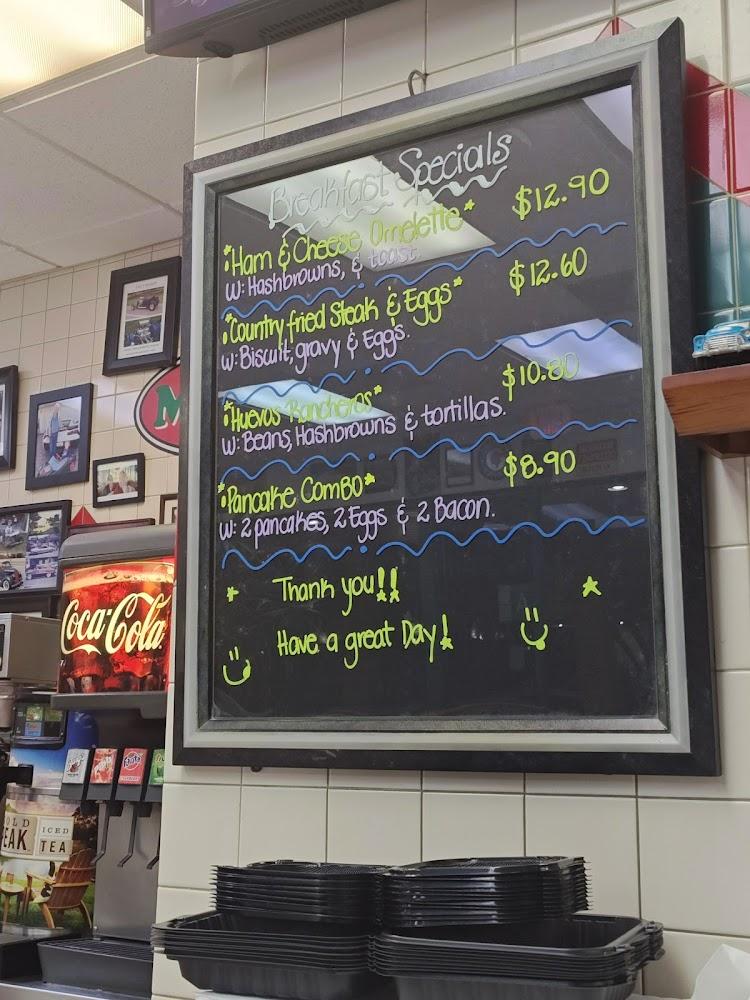 Breakfast Specials
*Ham & Cheese Omelette* $12.90
W: Hashbrowns, & toast.
*Country fried Steak & Eggs* $12.60
W: Biscuit, gravy & Eggs.
*Huevos Rancheros* $10.80
W: Beans, Hashbrowns & tortillas.
*Pancake Combo* $8.90
W: 2 pancakes, 2 Eggs & 2 Bacon.
Thank you!!
Have a great Day!
M
Coca-Cola
ICED
TEA